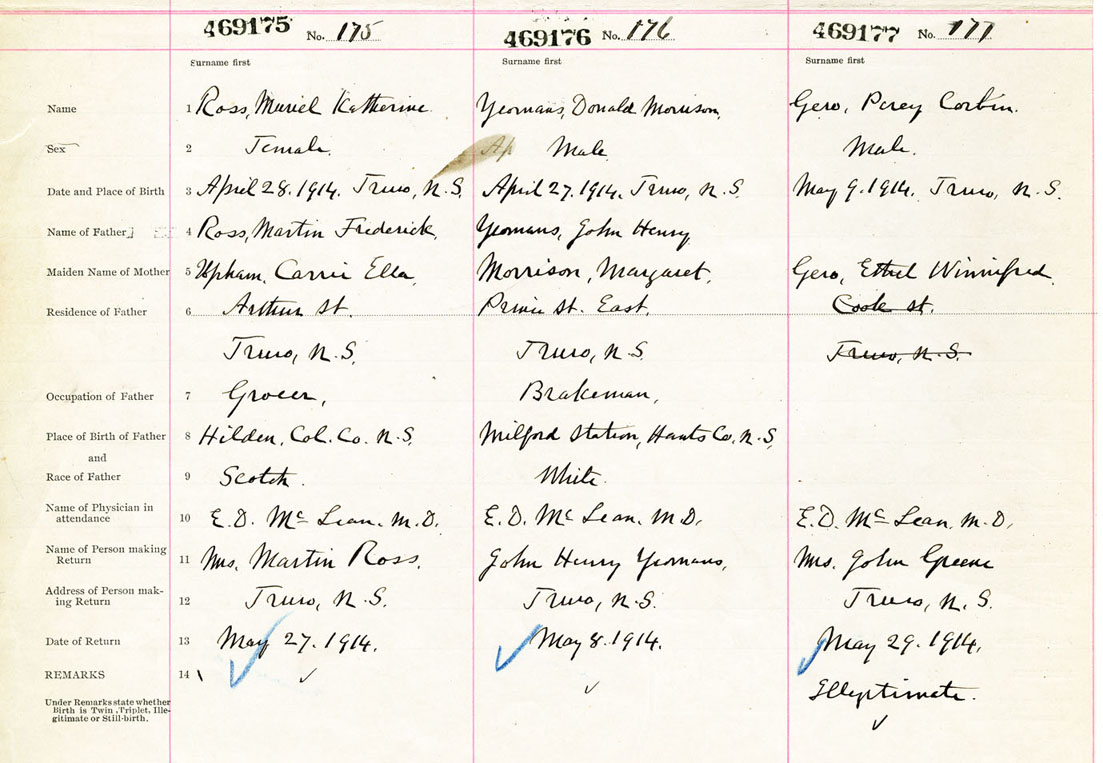 469175 No. 175 469176 No. 176 469177 No. 177
Surname first Surname first Surname first
Name 1 Ross, Muriel Katherine. Yeomans, Donald Morrison, Gero, Percy Corbin.
Sex 2 Female. Ap Male Male.
Date and Place of Birth 3 April 28. 1914. Truro, N.S. April 27. 1914. Truro, N.S. May 9. 1914. Truro, N.S.
Name of Father 4 Ross, Martin Frederick, Yeomans, John Henry
Maiden Name of Mother 5 Upham, Carrie Ella, Morrison, Margaret, Gero, Ethel Winnifred.
Residence of Father 6 Arthur St. Prince St. East, Cook St.
Truro, N.S. Truro, N.S. Truro, N.S.
Occupation of Father 7 Grocer, Brakeman,
Place of Birth of Father 8 Hilden, Col. Co. N.S. Milford Station, Hants Co. N.S,
and
Race of Father 9 Scotch. White.
Name of Physician in
attendance 10 E.D. McLean. M.D. E.D. McLean. M.D. E.D. McLean. M.D.
Name of Person making
Return 11 Mrs. Martin Ross. John Henry Yeomans, Mrs. John Greene
Address of Person mak-
ing Return 12 Truro, N.S. Truro, N.S. Truro, N.S.
Date of Return 13 May 27. 1914. May 8. 1914. May 29. 1914.
REMARKS 14 Illegitimate.
Under Remarks state whether
Birth is Twin, Triplet, Ille-
gitimate or Still-birth.